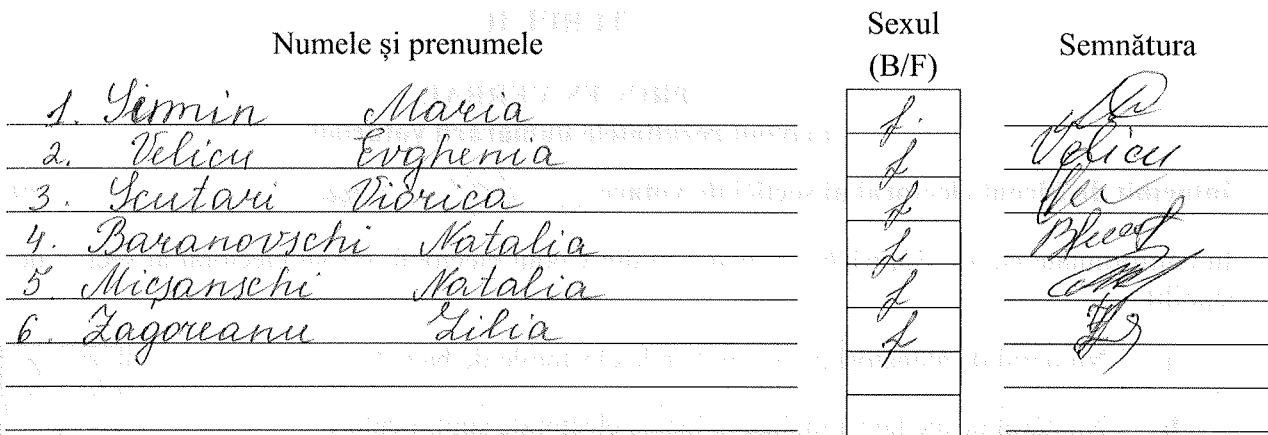 Numele și prenumele Sexul (B/F) Semnătura
1. Simin Maria f.
2. Velicu Evghenia f Velicu
3. Scutari Viorica f
4. Baranovschi Natalia f
5. Micșanschi Natalia f
6. Zagoreanu Lilia f